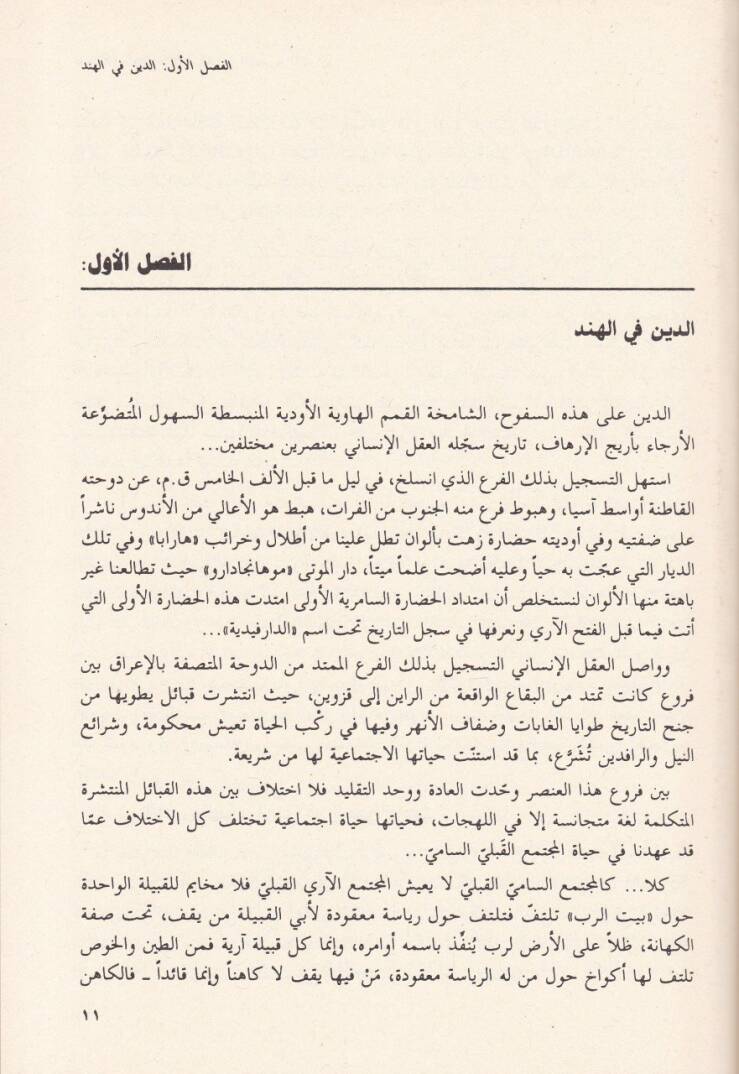 الفصل الأول: الدين في الهند
الفصل الأول:
الدين في الهند
الدين على هذه السفوح، الشامخة القمم الهاوية الأودية المنبسطة السهول المُتضوِّعة
الأرجاء بأريج الإرهاف، تاريخ سجّله العقل الإنساني بعنصرين مختلفين...
استهل التسجيل بذلك الفرع الذي انسلخ، في ليل ما قبل الألف الخامس ق.م، عن دوحته
القاطنة أواسط آسيا، وهبوط فرع منه الجنوب من الفرات، هبط هو الأعالي من الأندوس ناشراً
على ضفتيه وفي أوديته حضارة زهت بألوان تطل علينا من أطلال وخرائب «هارابا» وفي تلك
الديار التي عجّت به حياً وعليه أضحت علماً ميتاً، دار الموتى «موهانجادارو» حيث تطالعنا غير
باهتة منها الألوان لنستخلص أن امتداد الحضارة السامرية الأولى امتدت هذه الحضارة الأولى التي
أتت فيما قبل الفتح الآري ونعرفها في سجل التاريخ تحت اسم «الدارفيدية»...
وواصل العقل الإنساني التسجيل بذلك الفرع الممتد من الدوحة المتصفة بالإعراق بين
فروع كانت تمتد من البقاع الواقعة من الراين إلى قزوين، حيث انتشرت قبائل يطويها من
جنح التاريخ طوايا الغابات وضفاف الأنهر وفيها في ركْب الحياة تعيش محكومة، وشرائع
النيل والرافدين تُشَرَّع، بما قد استنّت حياتها الاجتماعية لها من شريعة.
بين فروع هذا العنصر وحّدت العادة ووحد التقليد فلا اختلاف بين هذه القبائل المنتشرة
المتكلمة لغة متجانسة إلا في اللهجات، فحياتها حياة اجتماعية تختلف كل الاختلاف عمّا
قد عهدنا في حياة المجتمع القَبليّ الساميّ...
كلا... كالمجتمع الساميّ القبليّ لا يعيش المجتمع الآري القبليّ فلا مخايم للقبيلة الواحدة
حول «بيت الرب» تلتفّ فتلتف حول رياسة معقودة لأبي القبيلة من يقف، تحت صفة
الكهانة، ظلاً على الأرض لرب يُنفّذ باسمه أوامره، وإنما كل قبيلة آرية فمن الطين والخوص
تلتف لها أكواخ حول من له الرياسة معقودة، مَنْ فيها يقف لا كاهناً وإنما قائداً ـ فالكاهن
١١